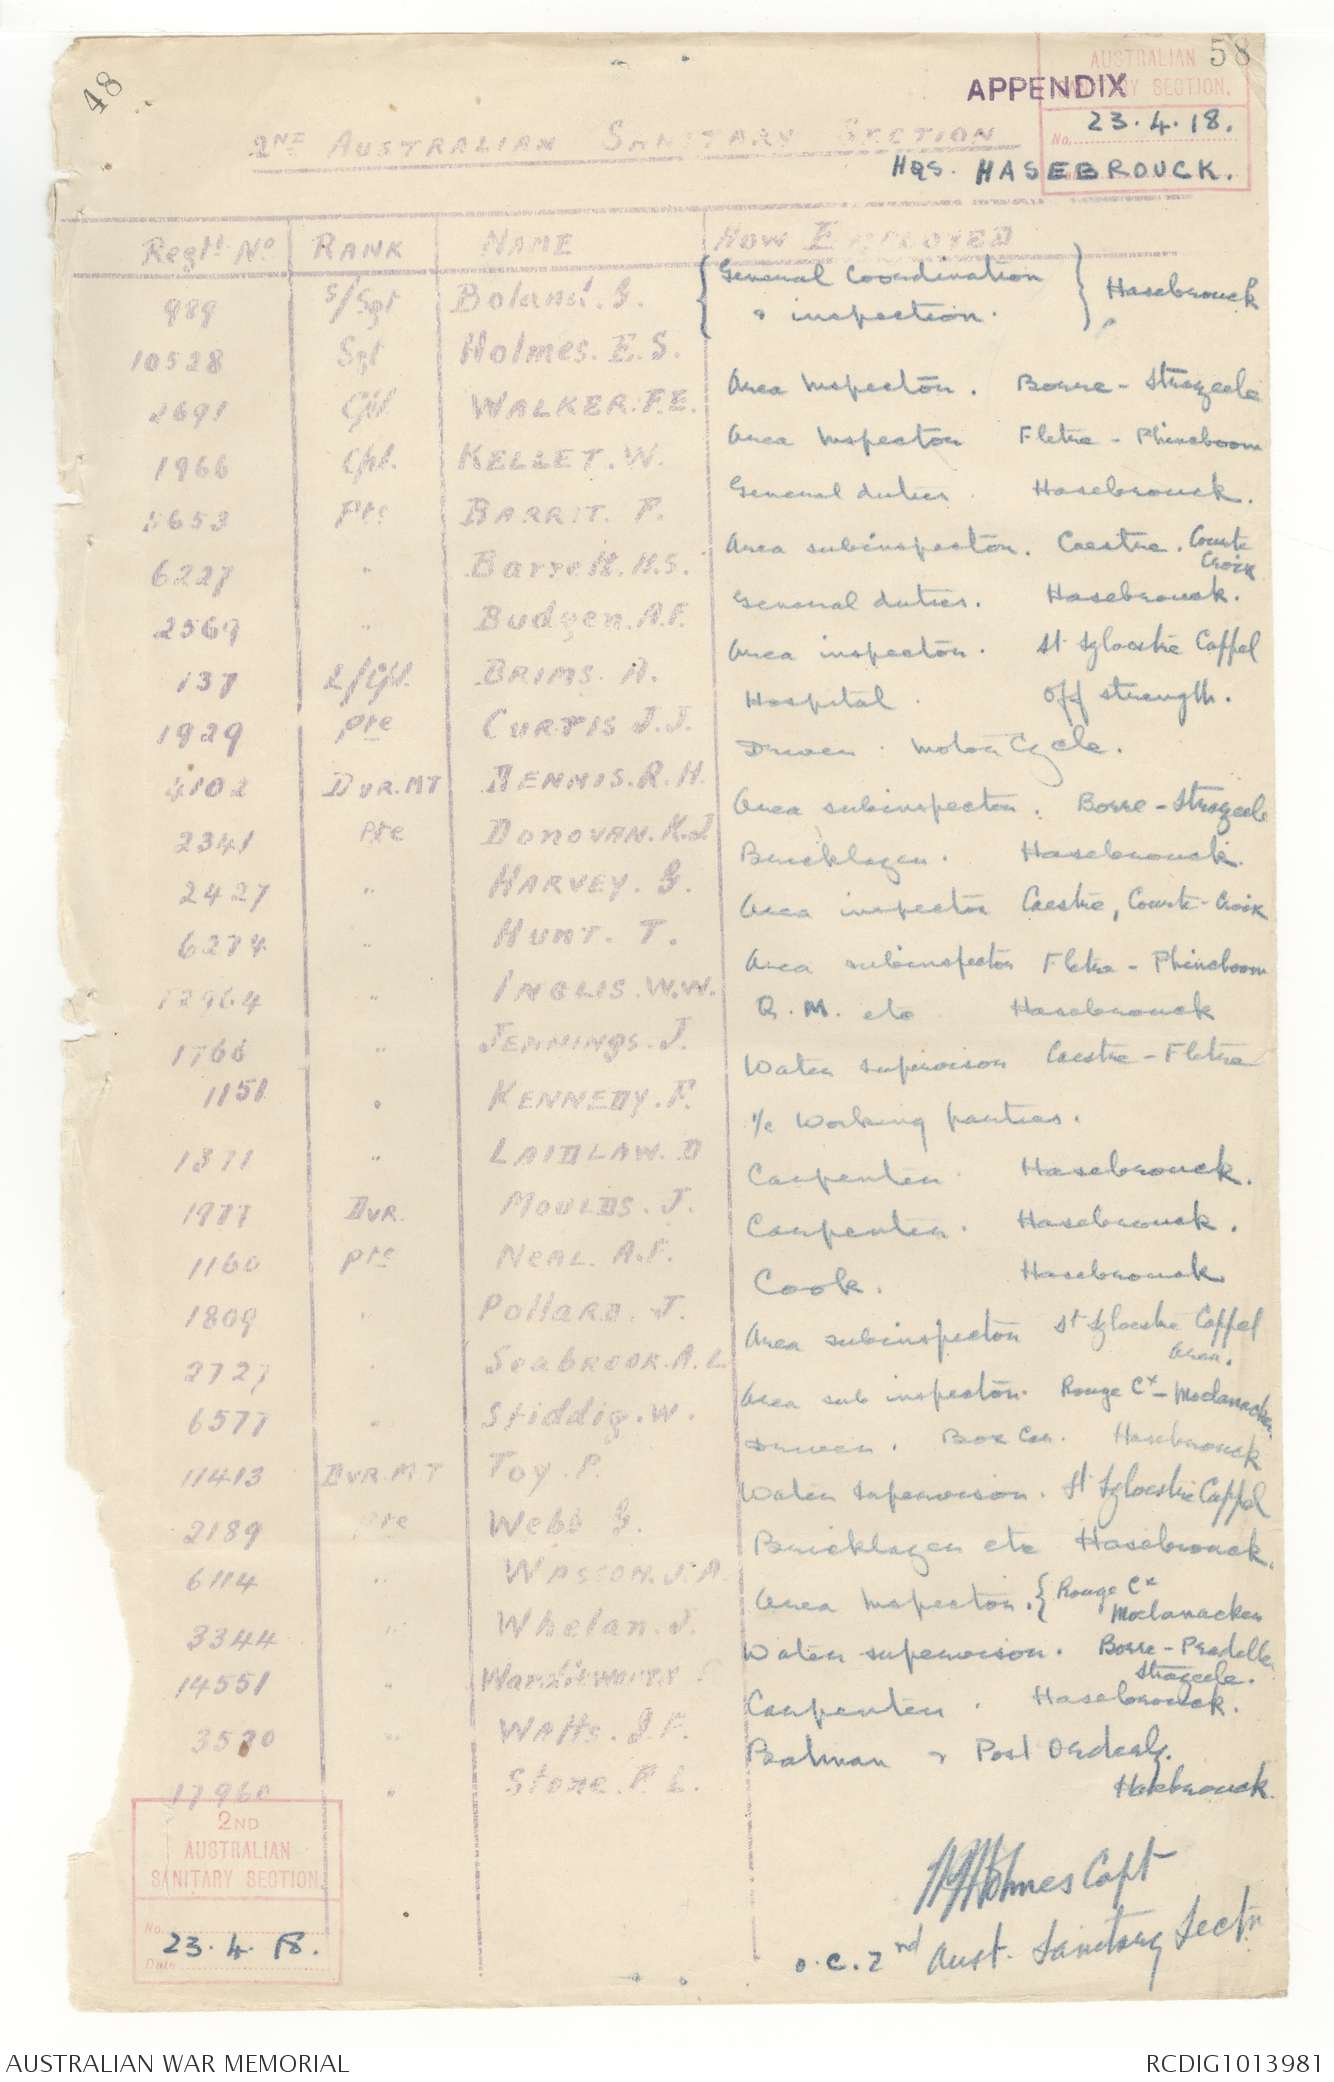 48
58
AUSTRALIAN
SANITARY SECTION.
APPENDIX
No. 23.4.18.
2ND AUSTRALIAN SANITARY SECTION
Hqs. HASEBROUCK.
Regtl No RANK NAME HOW EMPLOYED
989 S/Sgt Boland. G. { General Coordination
10528 Sgt Holmes. E. S. & inspection. } Hasebrouck
2691 Cpl. WALKER. F.E. Area Inspector. Borre - Strazeele
1966 Cpl. KELLET. W. Area Inspector Fletre - Phincboom
5653 Pte BARRIT. P. General duties. Hasebrouck.
6227 " Barrett. H.S. Area subinspector. Caestre. Courte Croix
2569 " Budgen. A.F. General duties. Hasebrouck.
137 L/Cpl. BRIMS. A. Area inspector. St Sylvestre Cappel
1929 Pte CURTIS J.J. Hospital. Off strength.
4102 DVR. MT DENNIS. R. H. Driver. Motor Cycle.
2341 Pte DONOVAN. K.J Area subinspector. Borre - Strazeele
2427 " HARVEY. G. Bricklayer. Hasebrouck.
6274 " HUNT. T. Area inspector Caestre, Courte-Croix
12964 " INGLIS. W.W. Area subinspector Fletre - Phincboom
1766 " JENNINGS. J. Q.M. etc Hasebrouck
1151 " KENNEDY. F. Water supervision Caestre - Fletre
1371 " LAIDLAW. D I/c Working parties.
1977 DVR. MOULDS. J. Carpenter Hasebrouck.
1160 Pte NEAL. A.F. Carpenter. Hasebrouck.
1809 " POLLARD. J. Cook. Hasebrouck
2727 " SEABROOK. A. L Area subinspector St Sylvestre Cappel area.
6577 " Stiddig. W. Area sub inspector. Rouge Cx - Moolanacker
11413 DVR. M T Toy. P. Driver. Box Car. Hasebrouck
2189 Pte Webb G. Water supervision. St Sylvestre Cappel
6114 " WASSON. J. A. Bricklayer etc Hasebrouck.
3344 " Whelan. J. Area Inspector. { Rouge Cx
Moolanacker
14551 " Water supervision. Borre - Pradelle
Strazeele.
3520 " WATTS. J. F. Carpenter. Hasebrouck.
17960 " Stone. P. L. Batman & Post Orderly.
Hasebrouck.
Holmes Capt
O.C. 2nd Aust. Sanitary Sectn
2ND
AUSTRALIAN
SANITARY SECTION.
No.
Date 23.4.18.
AUSTRALIAN WAR MEMORIAL
RCDIG1013981